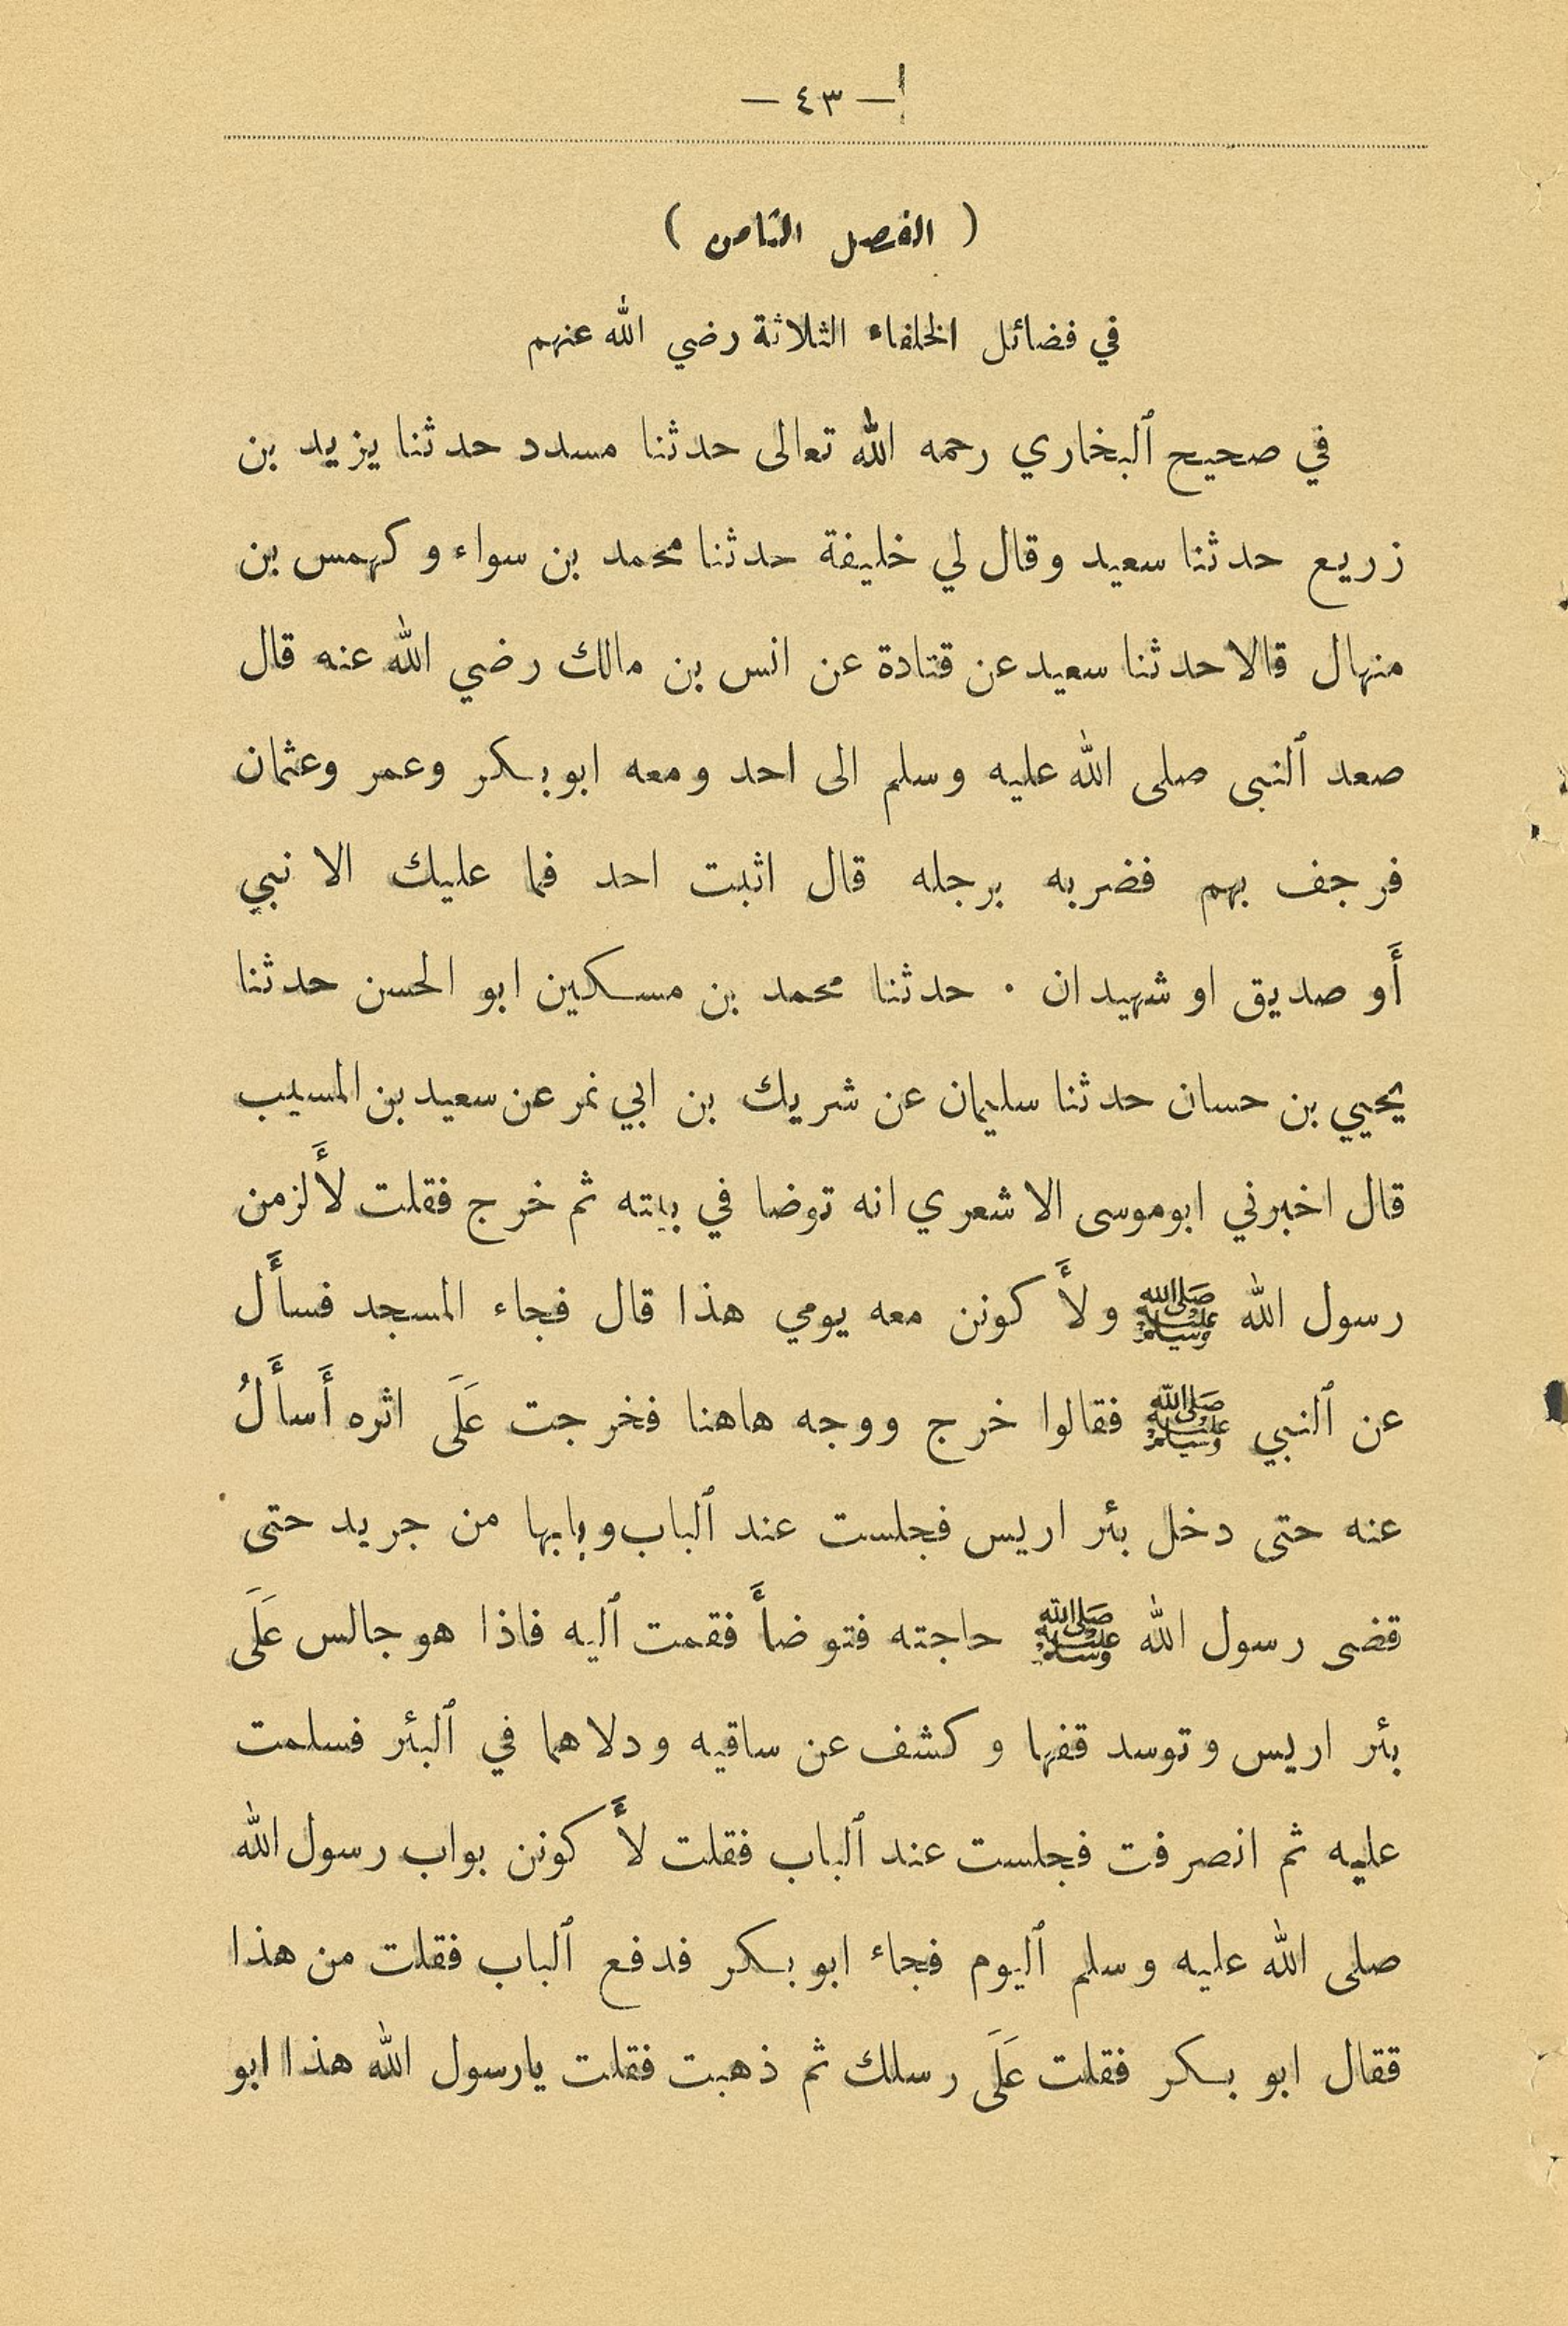 — ٤٣ —
( الفصل الثامن )
في فضائل الخلفاء الثلاثة رضي الله عنهم
في صحيح ٱلبخاري رحمه الله تعالى حدثنا مسدد حدثنا يزيد بن
زريع حدثنا سعيد وقال لي خليفة حدثنا محمد بن سواء وكهمس بن
منهال قالا حدثنا سعيد عن قتادة عن انس بن مالك رضي الله عنه قال
صعد ٱلنبى صلى الله عليه وسلم الى احد ومعه ابو بكر وعمر وعثمان
فرجف بهم فضربه برجله قال اثبت احد فما عليك الا نبي
أَو صديق او شهيدان · حدثنا محمد بن مسكين ابو الحسن حدثنا
يحيي بن حسان حدثنا سليمان عن شريك بن ابي نمر عن سعيد بن المسيب
قال اخبرني ابوموسى الاشعري انه توضا في بيته ثم خرج فقلت لأَلزمن
رسول الله ﷺ ولأَكونن معه يومي هذا قال فجاء المسجد فسأَل
عن ٱلنبي ﷺ فقالوا خرج ووجه هاهنا فخرجت عَلَى اثره أَسأَلُ
عنه حتى دخل بئر اريس فجلست عند ٱلباب وبابها من جريد حتى
قضى رسول الله ﷺ حاجته فتوضأَ فقمت ٱليه فاذا هو جالس عَلَى
بئر اريس وتوسد قفها وكشف عن ساقيه ودلاهما في ٱلبئر فسلمت
عليه ثم انصرفت فجلست عند ٱلباب فقلت لأَكونن بواب رسول الله
صلى الله عليه وسلم ٱليوم فجاء ابو بكر فدفع ٱلباب فقلت من هذا
فقال ابو بكر فقلت عَلَى رسلك ثم ذهبت فقلت يارسول الله هذا ابو